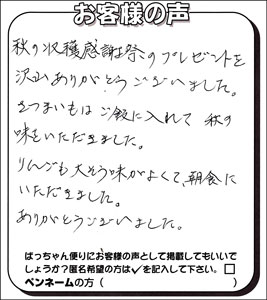 お客様の声
秋の収穫感謝祭のプレゼントを
沢山ありがとうございました。
さつまいもはご飯に入れて 秋の
味をいただきました。
りんごも大そう味がよくて、朝食に
いただきました。
ありがとうございました。
ばっちゃん便りにお客様の声として掲載してもいいで
しょうか?匿名希望の方は✓を記入して下さい。□
ペンネームの方( )